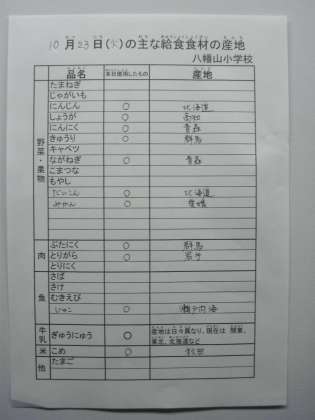 10月23日(火)の主な給食食材の産地
八幡山小学校
品名 本日使用したもの 産地
野菜・果物
たまねぎ
じゃがいも
にんじん ○ 北海道
しょうが ○ 高知
にんにく ○ 青森
きゅうり ○ 群馬
キャベツ
ながねぎ ○ 青森
こまつな
もやし
だいこん ○ 北海道
みかん ○ 愛媛
肉
ぶたにく ○ 群馬
とりがら ○ 岩手
とりにく
魚
さば
さけ
むきえび
じゃこ ○ 瀬戸内海
牛乳 ぎゅうにゅう ○ 産地は日々異なり、現在は 関東、
東北、北海道など
米 こめ ○ 秋田
他 たまご